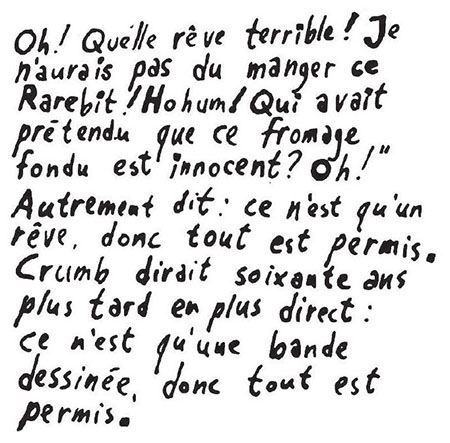 Oh! Quélle rêve terrible! Je
n'aurais pas du manger ce
Rarebit! Hohum! Qui avait
prétendu que ce fromage
fondu est innocent? Oh!"
Autrement dit: ce n'est qu'un
rêve, donc tout est permis.
Crumb dirait soixante ans
plus tard en plus direct:
ce n'est qu'une bande
dessinée, donc tout est
permis.